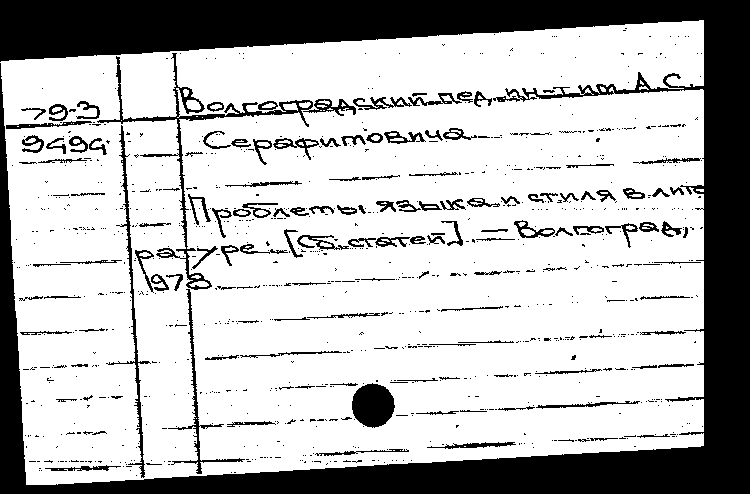 79-3
9494
Волгоградский пед. ин-т им. А. С.
Серафимовича
Проблемы языка и стиля в лите
ратуре: [Сб. статей]. — Волгоград,
1978